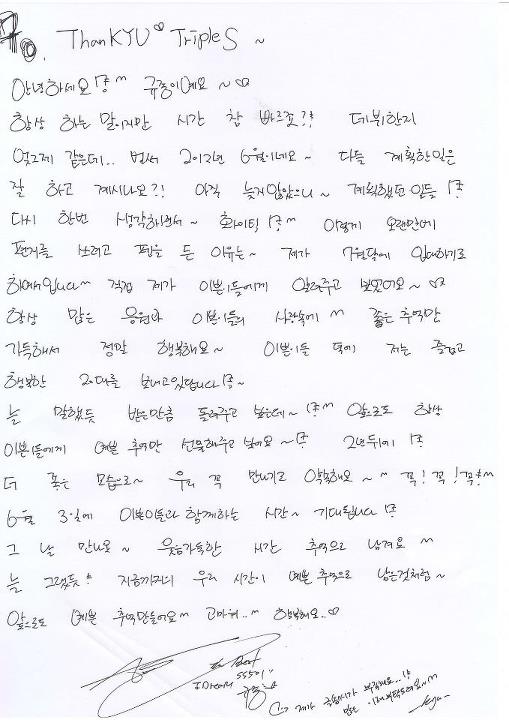 To. ThanKYU♡ TripleS ~
안녕하세요!? ^^ 규종이예요 ~♡
항상 하는 말이지만 시간 참 빠르죠?! 데뷔한지
엊그제 같은데.. 벌써 2012년 6월이네요~ 다들 계획한일은
잘 하고 계시나요?! 아직 늦지않았으니~ 계획했던 일들
다시 한번 생각하면서~ 화이팅! ^^ 이렇게 오랜만에
편지를 쓰려고 펜을 든 이유는~ 제가 7월달에 입대하기로
하여서입니다^^ 직접 제가 이쁜이들에게 알려주고 싶었어요~♡
항상 많은 응원과 이쁜이들의 사랑속에^^ 좋은 추억만
가득해서 정말 행복해요~ 이쁜이들 덕에 저는 즐겁고
행복한 20대를 보내고있습니다 ~
늘 말했듯 받은만큼 돌려주고 싶은데~ ^^ 앞으로도 항상
이쁜이들에게 예쁜 추억만 선물해주고 싶어요~ 2년뒤에
더 좋은 모습으로~ 우리 꼭 만나기로 약속해요~^^ 꼭!꼭!꼭!^^
6월 3일에 이쁜이들과 함께하는 시간~ 기대됩니다
그 날 만나요~ 웃음가득한 시간 추억으로 남겨요^^
늘 그랬듯! 지금까지의 우리 시간이 예쁜추억으로 남은것처럼~
앞으로도 예쁜 추억만들어요^^ 고마워..^^ 행복해요..♡
The Best
SS501
규종
제가 부탁드려요..^^
Kyu~